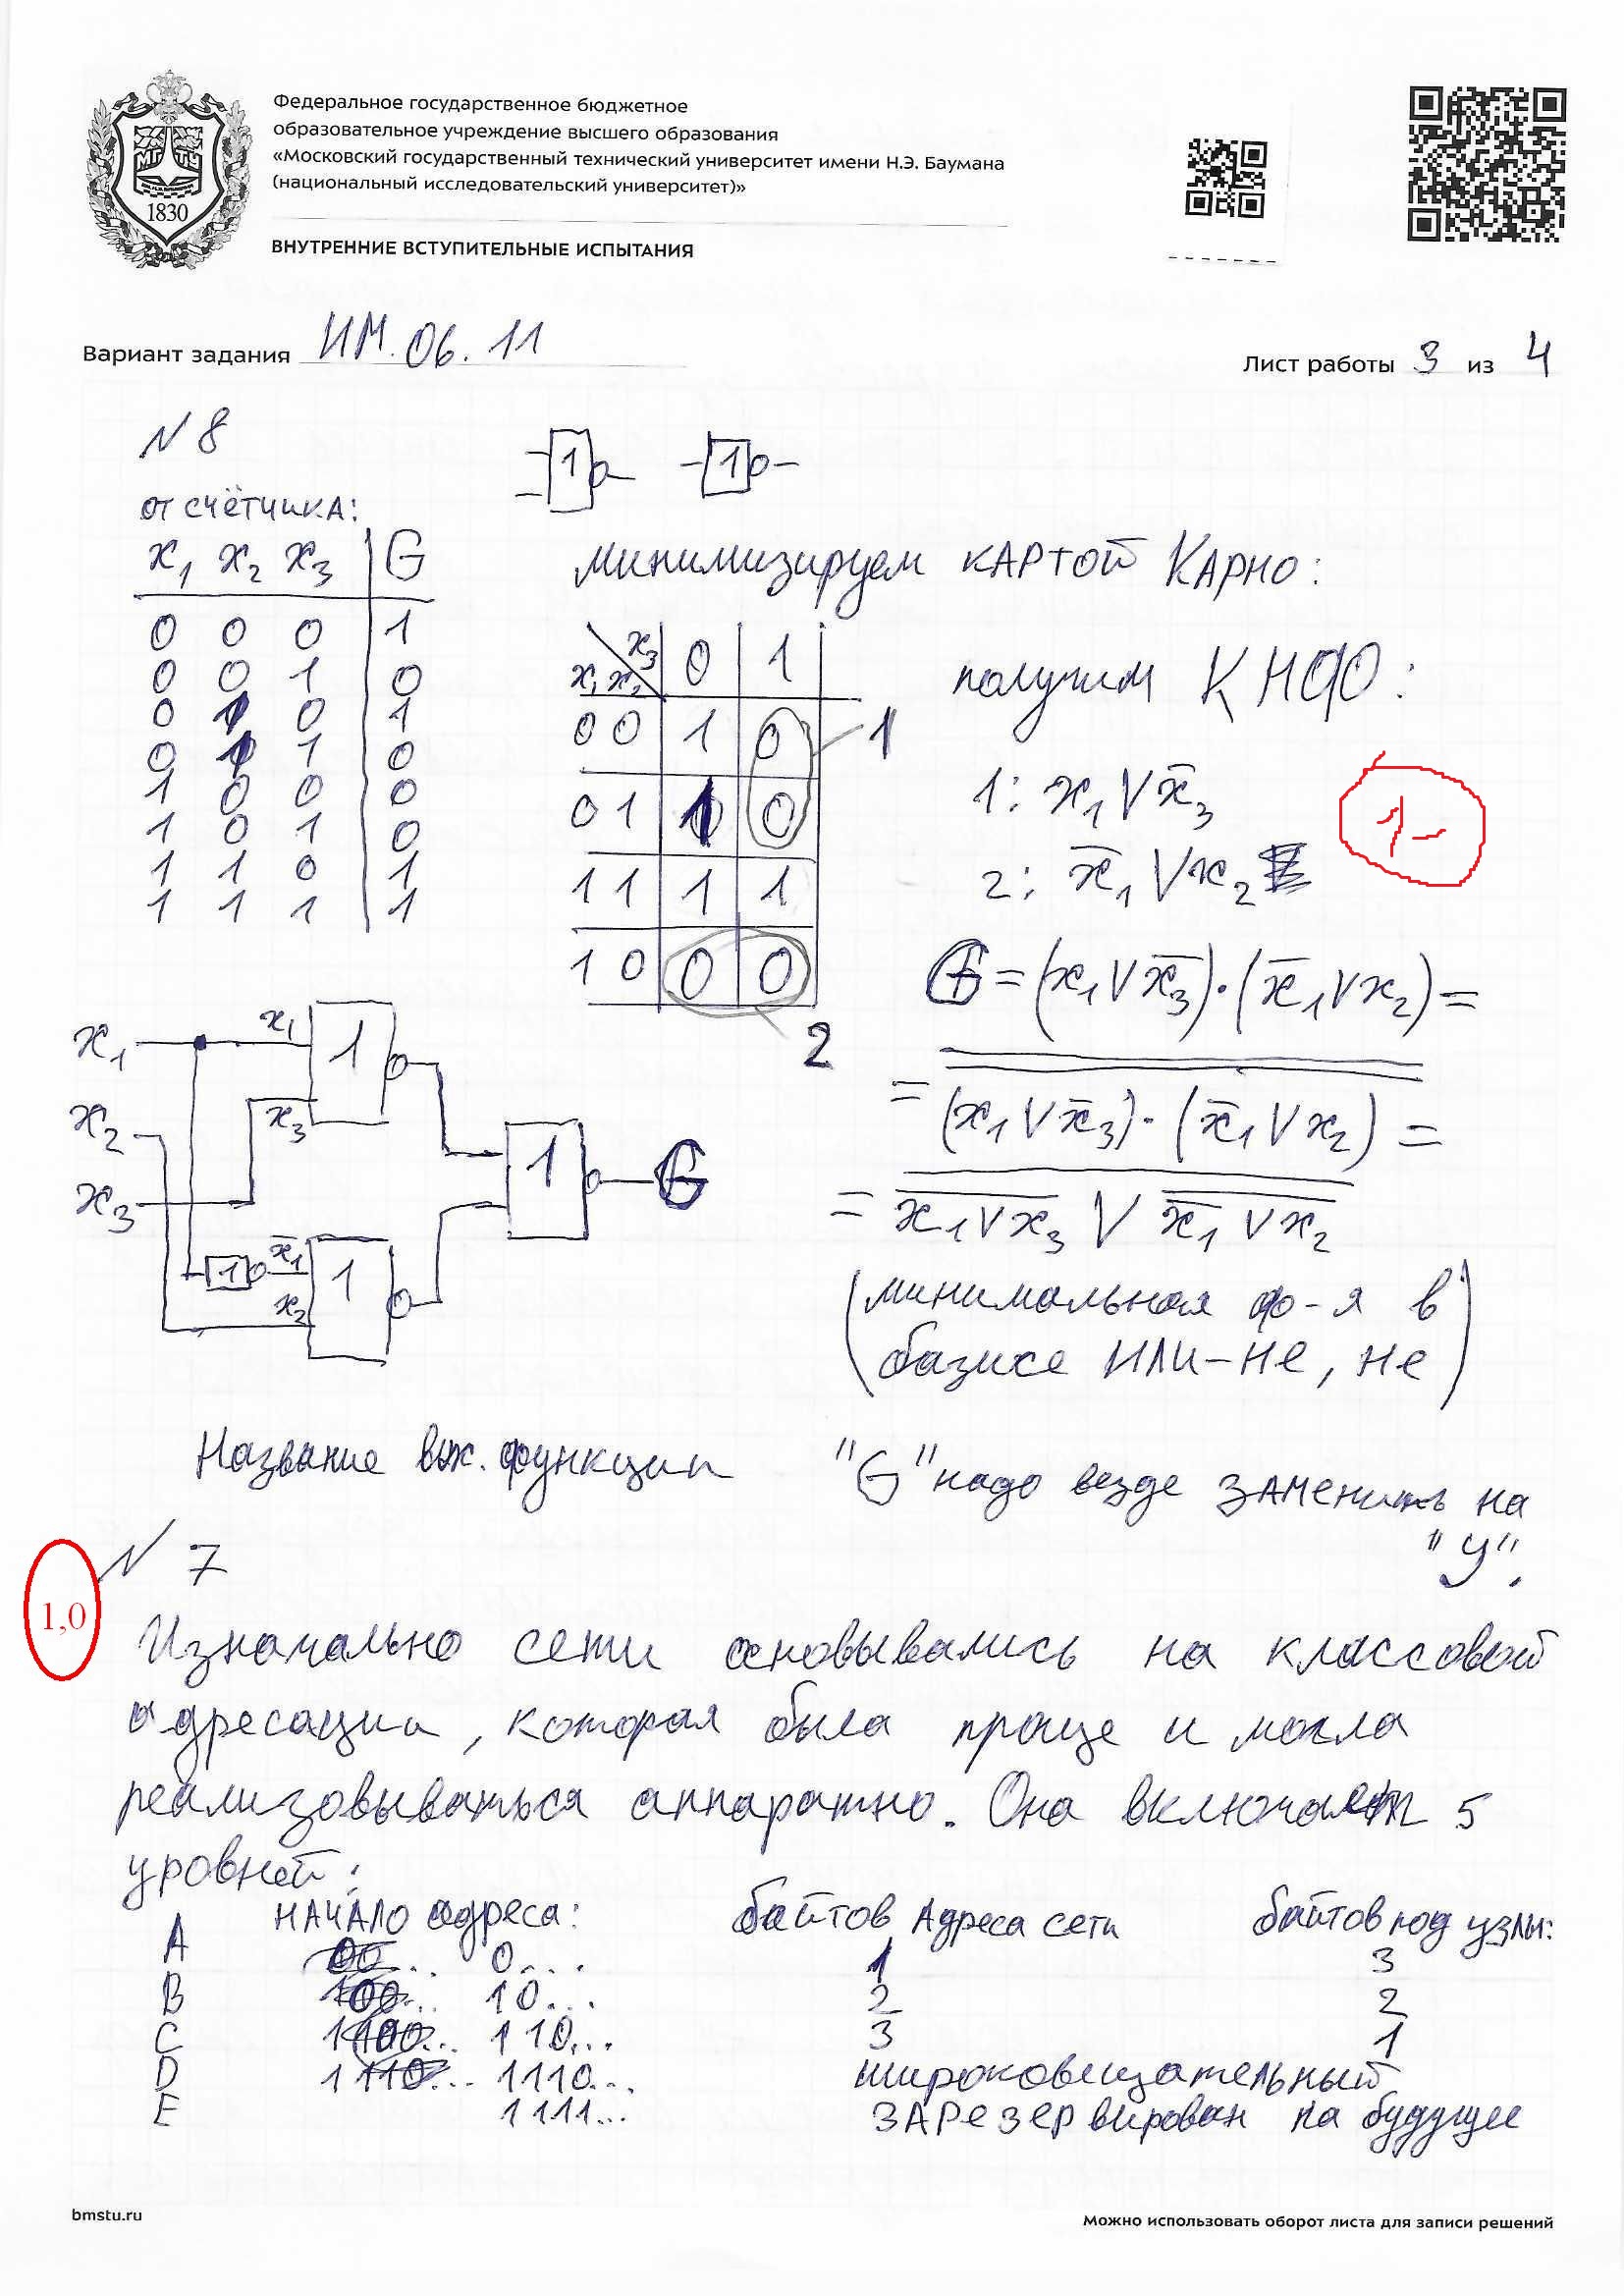 Федеральное государственное бюджетное
образовательное учреждение высшего образования
«Московский государственный технический университет имени Н.Э. Баумана
(национальный исследовательский университет)»
1830
ВНУТРЕННИЕ ВСТУПИТЕЛЬНЫЕ ИСПЫТАНИЯ
Вариант задания ИМ.06.11
Лист работы 3 из 4
N 8
1 1
от счётчика:
x₁ x₂ x₃ | G
0 0 0 | 1
0 0 1 | 0
0 1 0 | 1
0 1 1 | 0
1 0 0 | 0
1 0 1 | 0
1 1 0 | 1
1 1 1 | 1
минимизируем картой Карно:
x₁x₂ \ x₃ | 0 | 1
00 | 1 | 0
01 | 1 | 0
11 | 1 | 1
10 | 0 | 0
1
2
получим КНФ:
1: x₁ ∨ x̄₃
2: x̄₁ ∨ x₂
1-
G = (x₁ ∨ x̄₃)·(x̄₁ ∨ x₂) =
= (x₁ ∨ x̄₃)·(x̄₁ ∨ x₂) =
= x₁ ∨ x₃ ∨ x̄₁ ∨ x₂
(минимальная ф-я в
базисе ИЛИ-НЕ, НЕ)
x₁ x₁ 1
x₂ x₃
x₃ 1 G
1 x̄₁ 1
x₂
Название вых. функции "G" надо везде заменить на
"y".
1,0
N 7
Изначально сети основывались на классовой
адресации, которая была проще и могла
реализовываться аппаратно. Она включает 5
уровней:
начало адреса: байтов адреса сети байтов под узлы:
A 0... 1 3
B 10... 2 2
C 110... 3 1
D 1110... широковещательный
E 1111... зарезервирован на будущее
bmstu.ru
Можно использовать оборот листа для записи решений